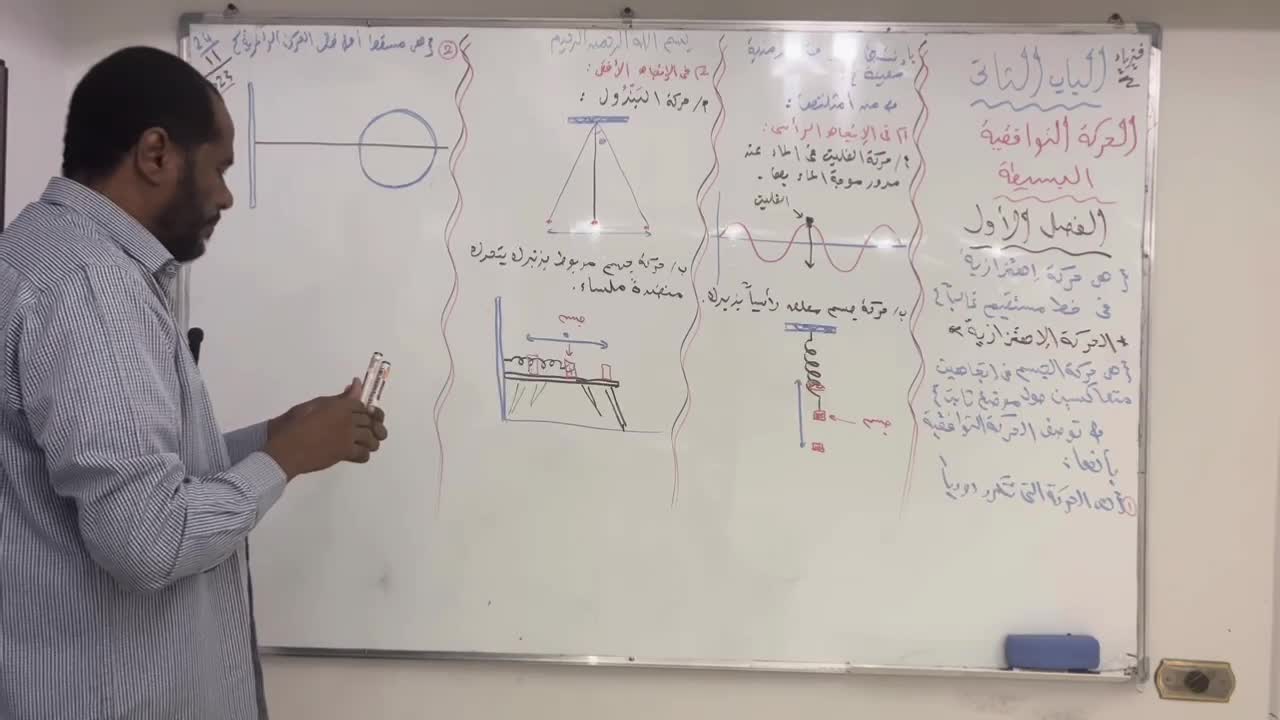 فيزياء
الباب الثاني
الحركة التوافقية
البسيطة
الفصل الأول
{هى حركة إهتزازية
فى خط مستقيم غالباً}
*الحركة الإهتزازية*
{هى حركة الجسم فى اتجاهين
متعاكسين حول موضع ثابت}
توصف الحركة التوافقية
بأنها:
① {هى الحركة التى تتكرر دورياً
معينة}.
من أمثلتها:
١] فى الإتجاه الرأسى:
أ/ حركة الفلين فى الماء عند
مرور موجة الماء بها.
الفلين
ب/ حركة جسم معلق رأسياً بزنبرك.
جسم
بسم الله الرحمن الرحيم
٢] فى الإتجاه الأفقى:
أ/ حركة البَنْدُول:
ب/ حركة جسم مربوط بزنبرك يتحرك
منضدة ملساء.
جسم
② {هى مسقط أحرف على الحركة الدائرية}
24/11/23